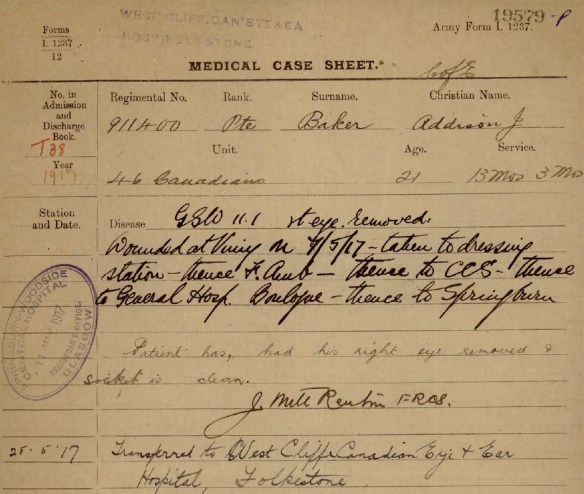 WEST CLIFF CAN EYE & EA
HOSP FOLKESTONE
19579-P
Forms
I. 1237
12
Army Form I. 1237.
MEDICAL CASE SHEET.*
C of E
No. in
Admission
and
Discharge
Book.
T38
Year
1917
Regimental No. Rank. Surname. Christian Name.
911400 Pte Baker Addison J
Unit. Age. Service.
46 Canadians 21 13 Mos 3 Mos
Station
and Date.
Disease GSW 11.1 rt eye. removed.
Wounded at Vimy on 9/5/17 - taken to dressing
station - thence F. Amb - thence to CCS - thence
to General Hosp. Boulogne - thence to Springburn
WOODSIDE
CENTRAL HOSPITAL
11 MAY 1917
REGISTRAR'S OFFICE
GLASGOW
Patient has, had his right eye removed &
socket is clean.
J. FRCS.
25.5.17 Transferred to West Cliffe Canadian Eye & Ear
Hospital, Folkestone.